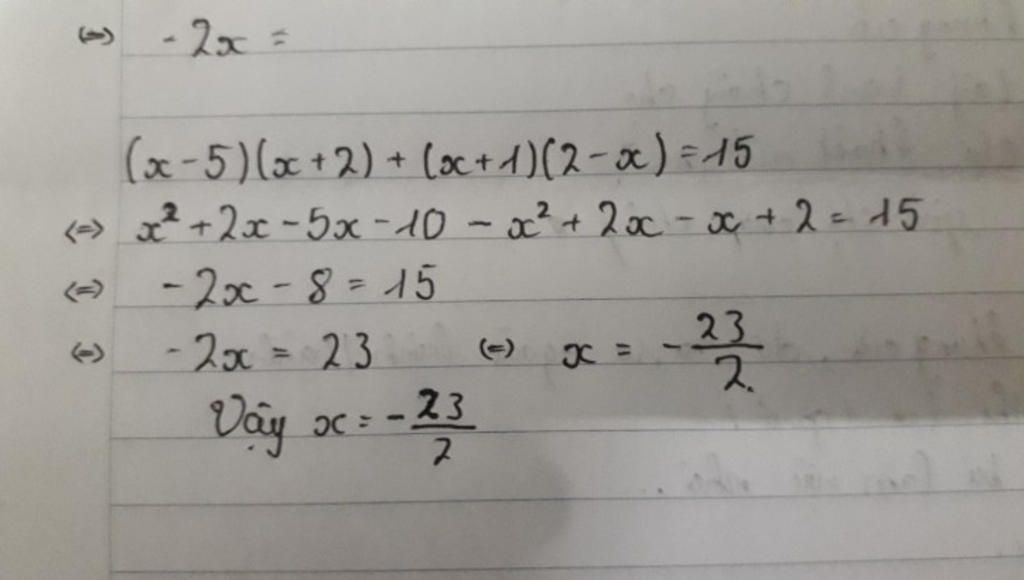 (=) -2x =
(x-5)(x+2) + (x+1)(2-x) = 15
(=) x² + 2x - 5x - 10 - x² + 2x - x + 2 = 15
(=) -2x - 8 = 15
(=) -2x = 23 (=) x = -23/2.
Vậy x = -23/2